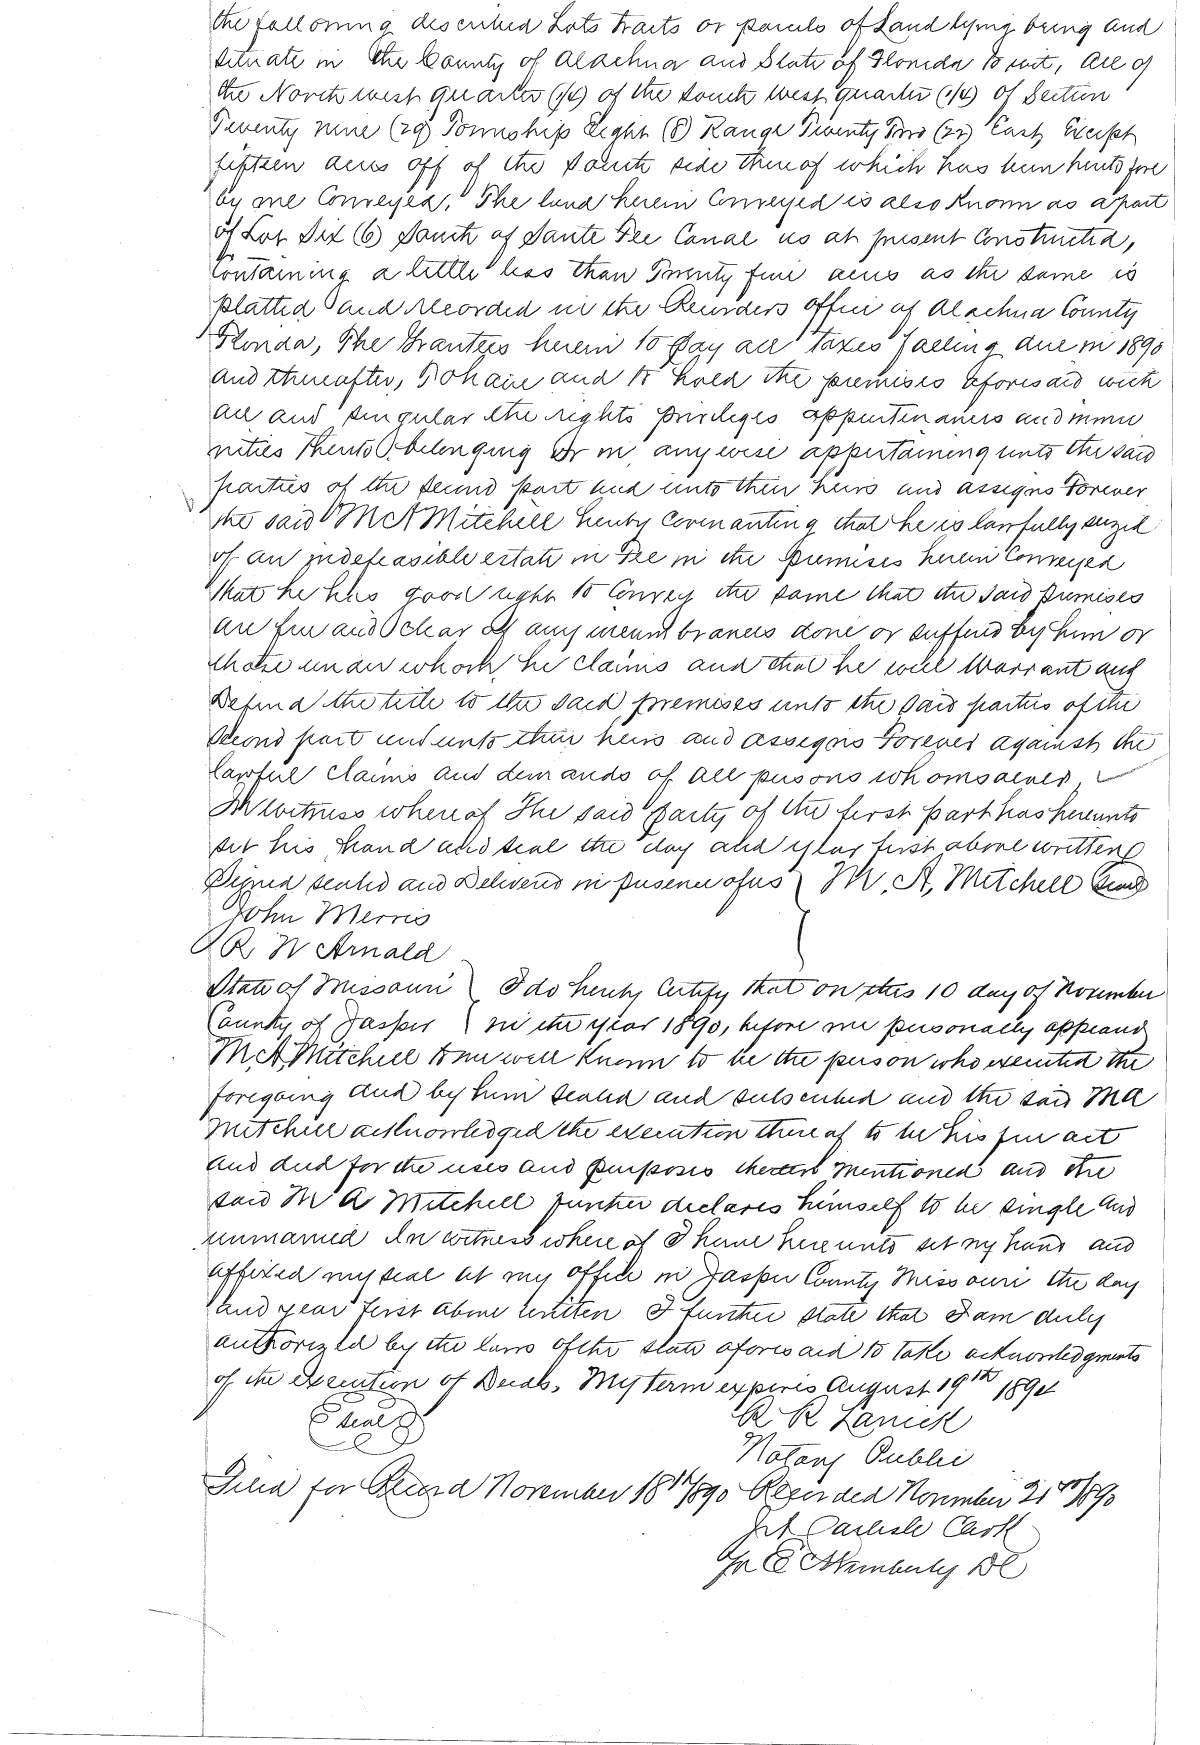 the following described Lots tracts or parcels of Land lying being and
situate in the County of Alachua and State of Florida to wit, All of
the North west quarter (1/4) of the South west quarter (1/4) of Section
Twenty nine (29) Township Eight (8) Range Twenty Two (22) East, Except
fifteen acres off of the South side thereof which has been heretofore
by me Conveyed. The land herein Conveyed is also Known as a part
of Lot Six (6) South of Sante Fee Canal as at present Constructed,
Containing a little less than Twenty five acres as the same is
platted and recorded in the Recorders office of Alachua County
Florida, The Grantees herein to pay all taxes falling due in 1890
and thereafter, To have and to hold the premises aforesaid with
all and singular the rights privileges appurtenances and immu
nities thereto belonging or in any wise appertaining unto the said
parties of the second part and unto their heirs and assigns Forever
the said M A Mitchell hereby Covenanting that he is lawfully seized
of an indefeasible estate in Fee in the premises herein Conveyed
that he has good right to Convey the same that the said premises
are free and clear of any incumbrances done or suffered by him or
those under whom he claims and that he will Warrant and
Defend the title to the said premises unto the said parties of the
second part and unto their heirs and assigns Forever against the
lawful claims and demands of all persons whomsoever,
In Witness whereof The said party of the first part has hereunto
set his hand and seal the day and year first above written
Signed sealed and Delivered in presence of us } M. A. Mitchell (Seal)
John Merris
R W Arnald
State of Missouri } I do hereby Certify that on this 10 day of November
County of Jasper } in the year 1890, before me personally appeared
M. A. Mitchell to me well Known to be the person who executed the
foregoing deed by him sealed and subscribed and the said M A
Mitchell acknowledged the execution thereof to be his free act
and deed for the uses and purposes therein mentioned and the
said M A Mitchell further declares himself to be single and
unmarried In witness where of I have here unto set my hand and
affixed my seal at my office in Jasper County Missouri the day
and year first above written I further state that I am duly
authorized by the laws of the state aforesaid to take acknowledgments
of the execution of Deeds. My term expires August 19th 1894
(Seal) R R Lanick
Notary Public
Filed for Record November 18th/890 Recorded November 21st/890
Carlisle Clerk
Wimberly DC